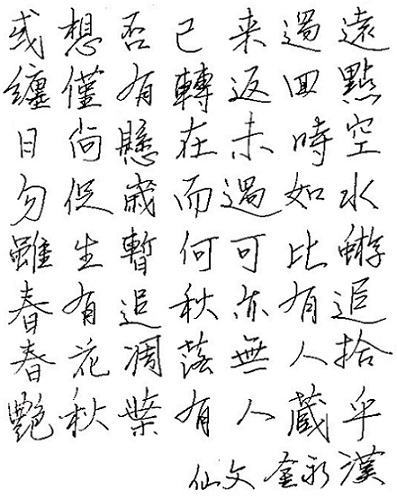 或想否已来過遠
纏僅有轉返回點
日尚懸在未時空
勿促歳而過如水
雖生暫何可比蝣
春有追秋亦有追
春花凋落無人拾
艷秋葉有人蔵乎
仙文 金永漢